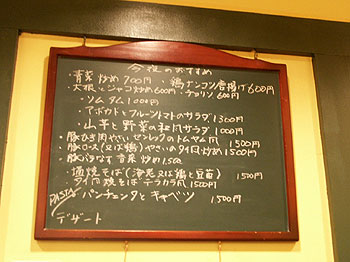 今夜のおすすめ
・青菜炒め 700円 ・鶏ナンコツ唐揚げ600円
・大根とジャコ炒め600円・チョリソ 600円
・ソムタム1000円
・アボカドとフルーツトマトのサラダ1300円
・山芋と野菜の和風サラダ 1000円
・豚ひき肉やさい のトムヤム風 1500円
・豚ロース(又は鶏)やさいのタイ風炒め1500円
・豚バラなす青菜炒め1500
・塩焼そば(海老又は鶏と豆苗) 1500円
タイ風焼そばテラカラ風 1500円
PASTA パンチェッタとキャベツ 1500円
デザート